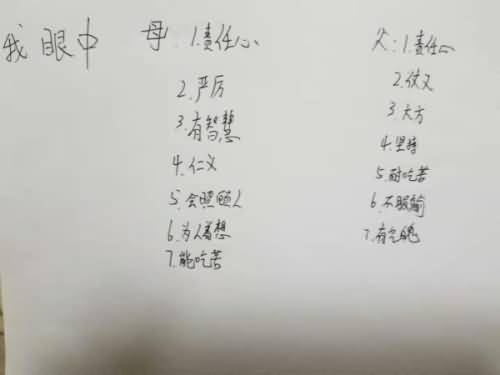 我眼中
母:1.责任心
2.严厉
3.有智慧
4.仁义
5.会照顾人
6.为人着想
7.能吃苦
父:1.责任心
2.仗义
3.大方
4.坚持
5.耐吃苦
6.不服输
7.有气魄